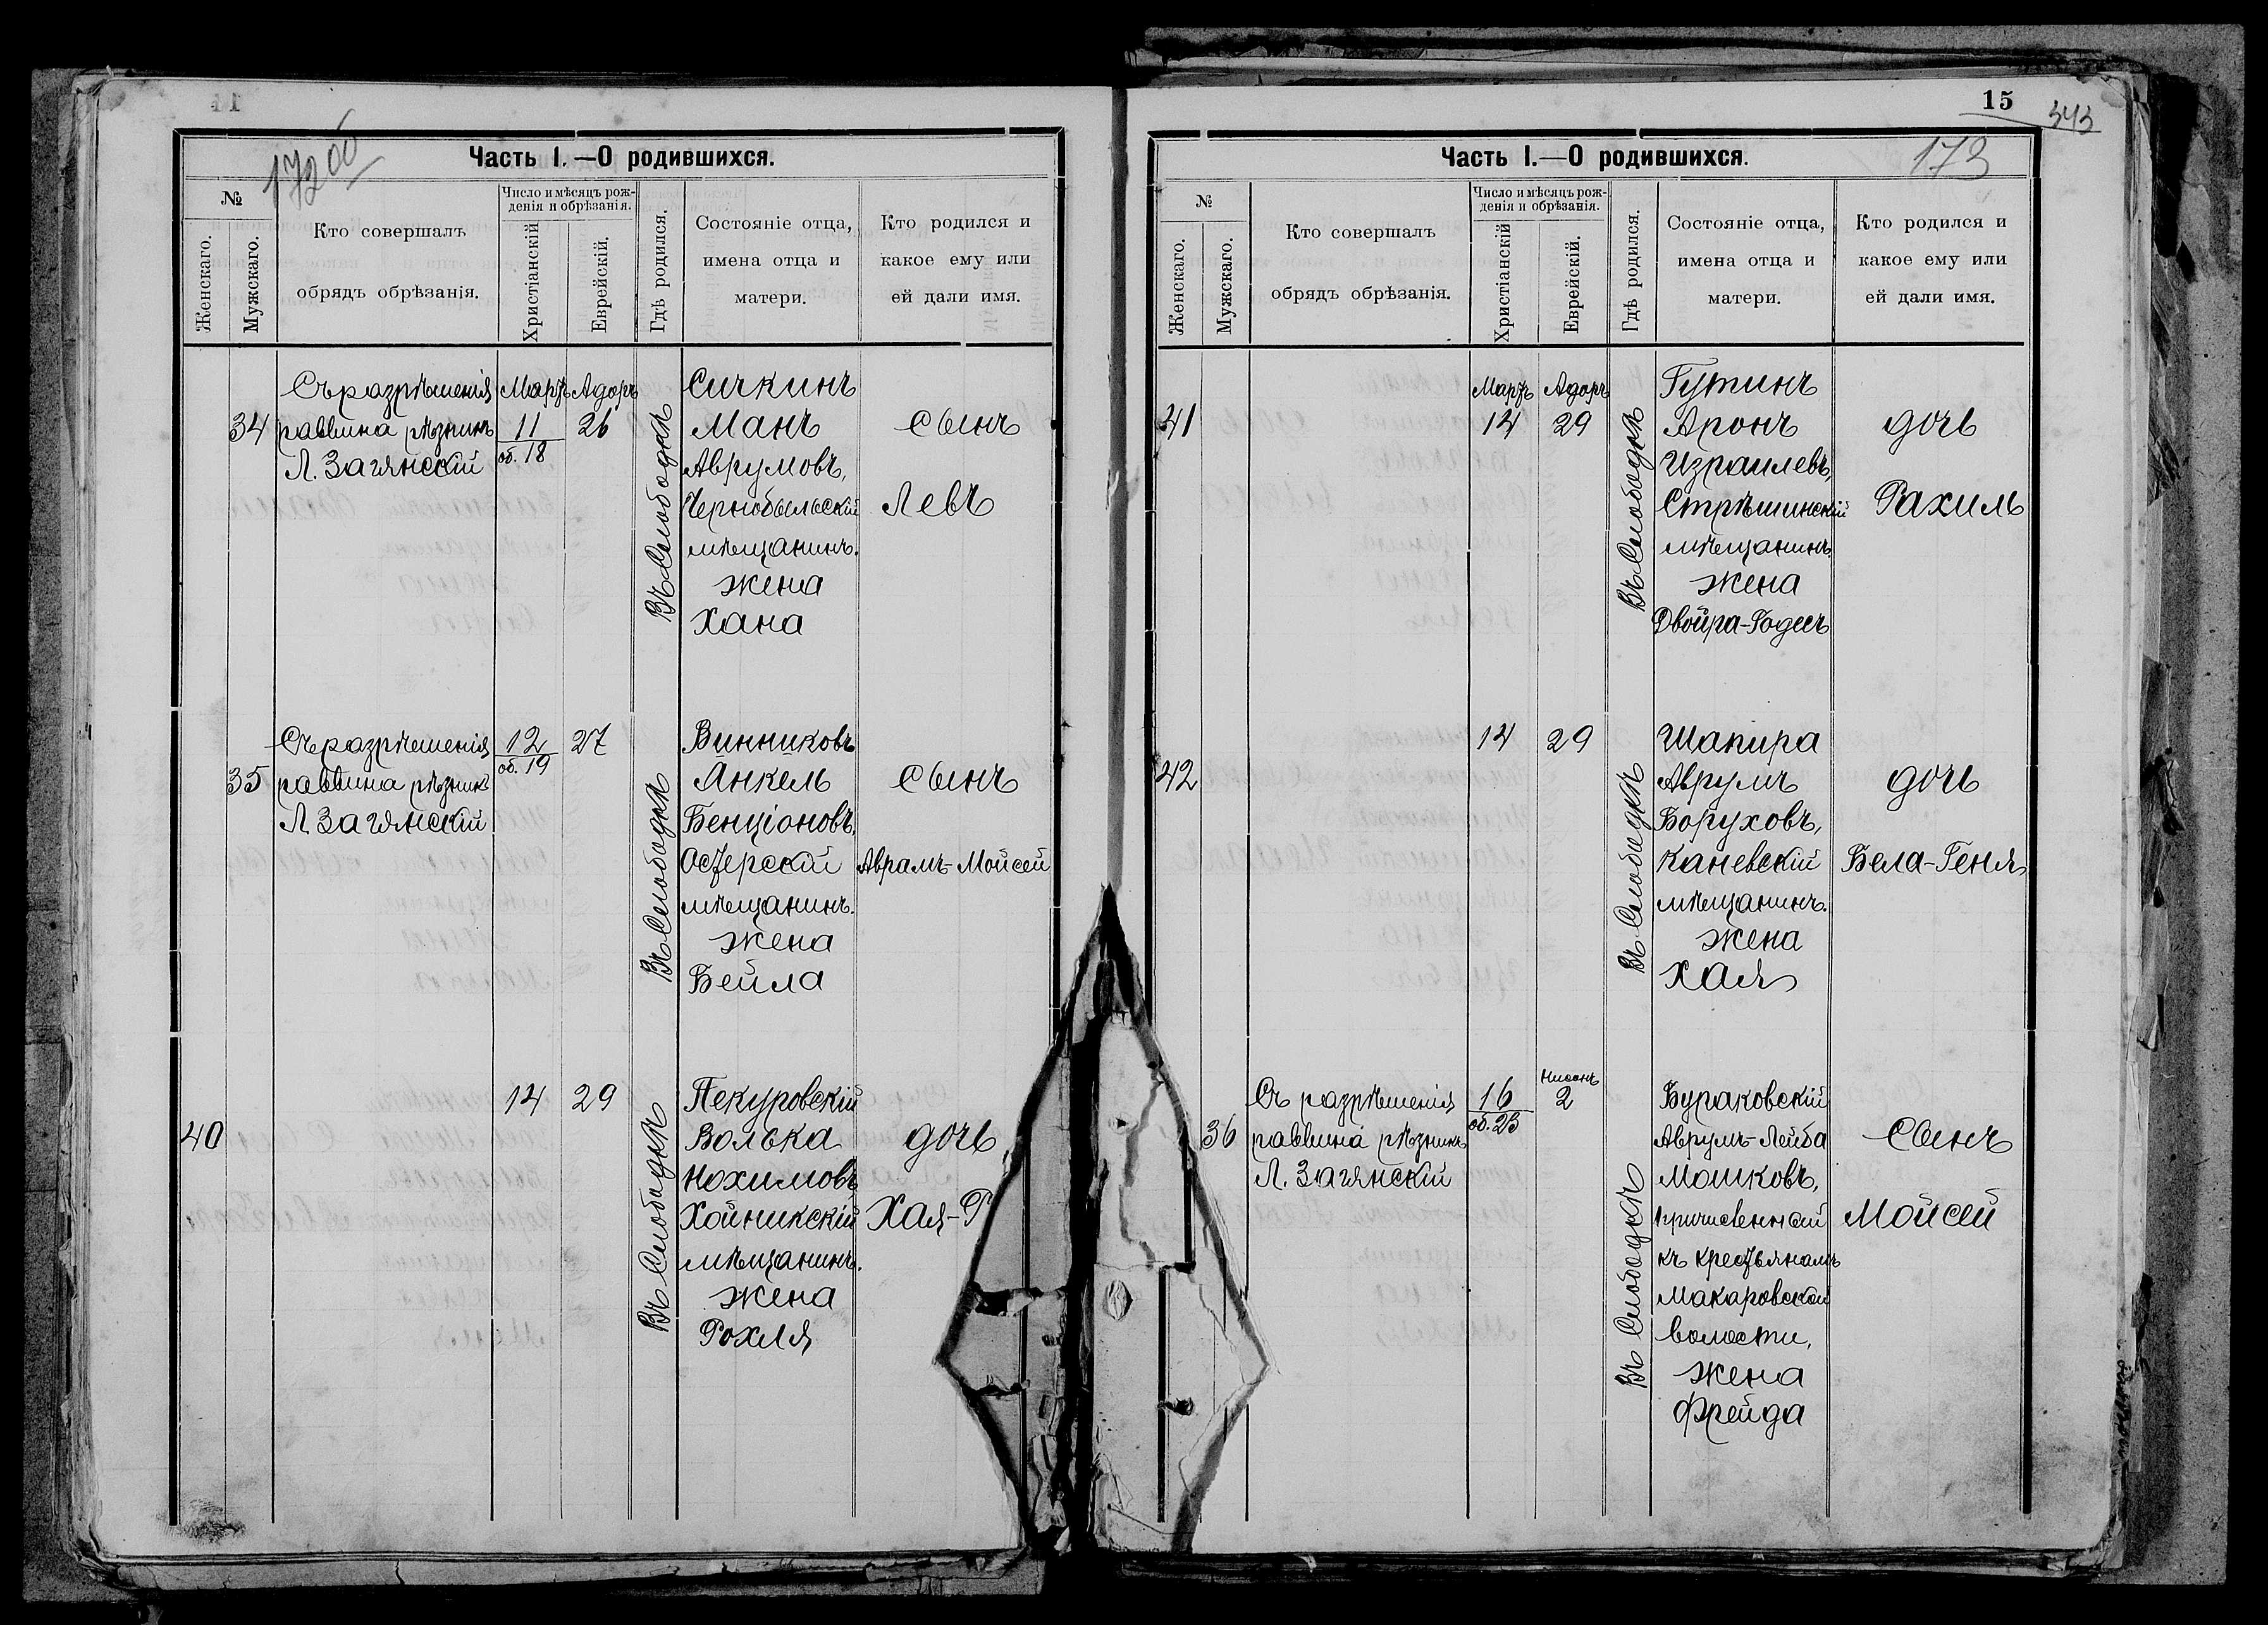 172 об
Часть I.—О родившихся.
№
Женскаго.
Мужскаго.
Кто совершалъ
обрядъ обрѣзанія.
Число и мѣсяцъ рож-
денія и обрѣзанія.
Христіанскій
Еврейскій.
Гдѣ родился.
Состояніе отца,
имена отца и
матери.
Кто родился и
какое ему или
ей дали имя.
34
Съ разрѣшенія
раввина рѣзникъ
Л. Загянскій
Мартъ
11
об. 18
Адоръ
26
Въ Слободкѣ
Сичкинъ
Манъ
Аврумовъ,
Чернобыльскій
мѣщанинъ.
жена
Хана
сынъ
Левъ
35
Съ разрѣшенія
раввина рѣзникъ
Л. Загянскій
12
об. 19
27
Въ Слободкѣ
Винниковъ
Янкель
Бенціоновъ,
Остерскій
мѣщанинъ.
жена
Бейла
сынъ
Аврамъ-Мойсей
40
14
29
Въ Слободкѣ
Пекуровскій
Волька
Нохимовъ
Хойникскій
мѣщанинъ.
жена
Рохля
дочь
Хая-Р
15
343
173
Часть I.—О родившихся.
№
Женскаго.
Мужскаго.
Кто совершалъ
обрядъ обрѣзанія.
Число и мѣсяцъ рож-
денія и обрѣзанія.
Христіанскій
Еврейскій.
Гдѣ родился.
Состояніе отца,
имена отца и
матери.
Кто родился и
какое ему или
ей дали имя.
41
Мартъ
14
Адоръ
29
Въ Слободкѣ
Гутинъ
Аронъ
Израилевъ,
Стрѣшинскій
мѣщанинъ
жена
Двойра-Годесъ
дочь
Рахиль
42
14
29
Въ Слободкѣ
Шапира
Аврумъ
Боруховъ,
Каневскій
мѣщанинъ.
жена
Хая
дочь
Бела-Геня
36
Съ разрѣшенія
раввина рѣзникъ
Л. Загянскій
16
об. 23
Нисонъ
2
Въ Слободкѣ
Бураковскій
Аврумъ-Лейба
Мошковъ,
причисленный
къ крестьянамъ
Макаровской
волости,
жена
Фрейда
сынъ
Мойсей